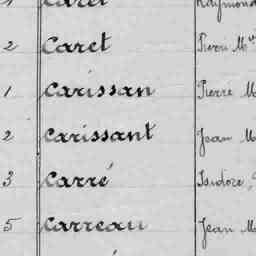 Caret Raymond
2 Caret Pierre Mie
1 Carissan Pierre M
2 Carissant Jean M
3 Carré Isidore,
5 Carreau Jean M